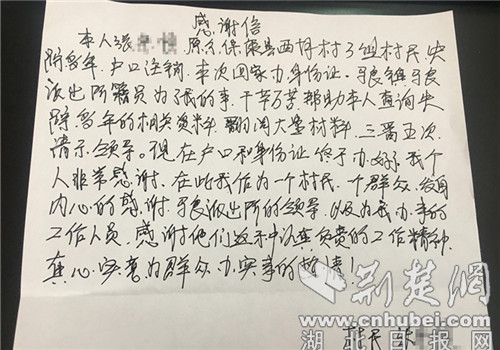 感谢信
本人张 原系保康县西坪村3组村民,失
踪多年,户口注销,本次回家办身份证,马良镇马良
派出所籍员为了我的事,千辛万苦帮助本人查询失
踪多年的相关资料,翻阅大量材料,三番五次
请示领导。现在户口和身份证终于办好了我个
人非常感谢,在此我作为一个村民,一个群众,发自
内心的感谢,马良派出所的领导,以及为我办事的
工作人员,感谢他们这种认真负责的工作精神,
真心实意为群众办实事的
村民
荆楚网
www.cnhubei.com
湖北日报网